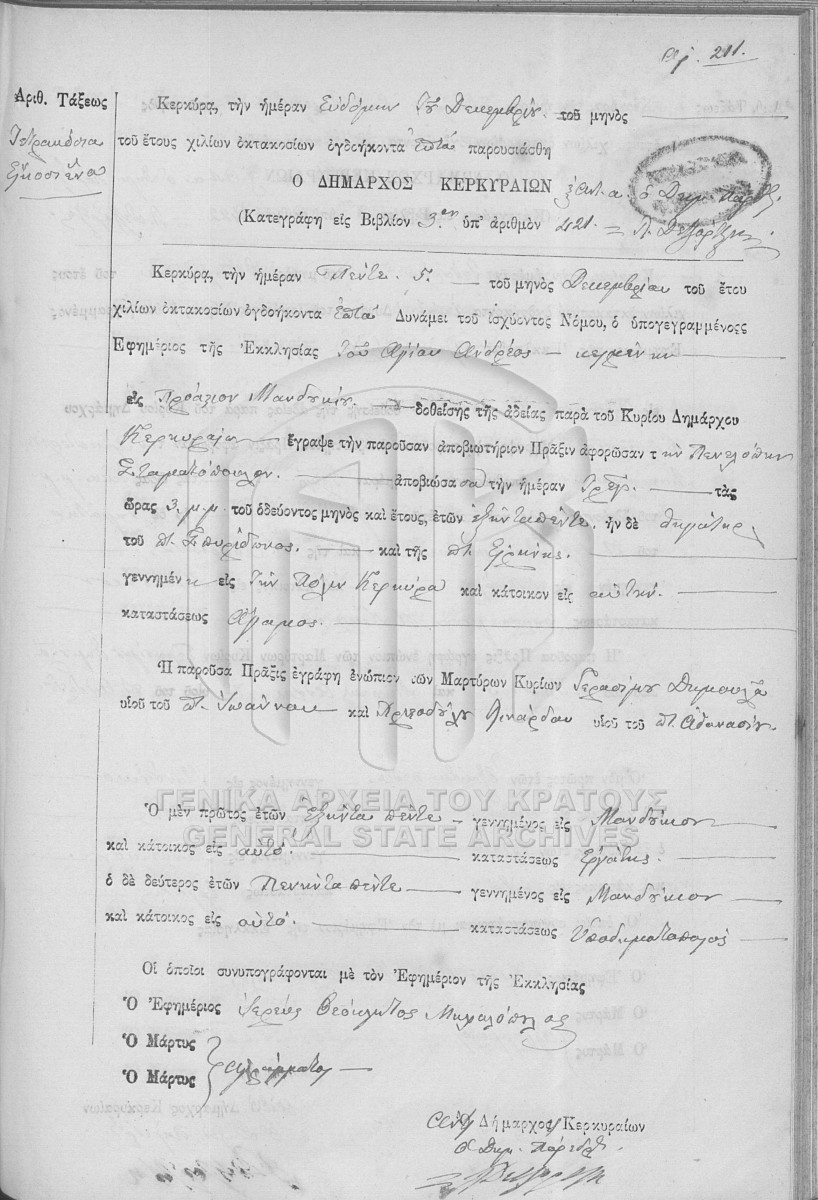 Ἀρ. 211.
Ἀριθ. Τάξεως
Τετρακόσια
Εἴκοσι ἕνα
Κερκύρα, τὴν ἡμέραν Ἑβδόμην τοῦ Δεκεμβρίου τοῦ μηνὸς
τοῦ ἔτους χιλίων ὀκτακοσίων ὀγδοήκοντα ἑπτὰ παρουσιάσθη
Ο ΔΗΜΑΡΧΟΣ ΚΕΡΚΥΡΑΙΩΝ ὁ Δημ. Πάρεδρ.
(Κατεγράφη εἰς Βιβλίον 3ον ὑπ' ἀριθμὸν 421
Κερκύρα, τὴν ἡμέραν Πέντε 5. τοῦ μηνὸς Δεκεμβρίου τοῦ ἔτου
χιλίων ὀκτακοσίων ὀγδοήκοντα ἑπτὰ Δυνάμει τοῦ ἰσχύοντος Νόμου, ὁ ὑπογεγραμμένος
Ἐφημέριος τῆς Ἐκκλησίας τοῦ Ἁγίου Ἀνδρέος κειμένην
εἰς Προάστιον Μανδουκίου δοθείσης τῆς ἀδείας παρὰ τοῦ Κυρίου Δημάρχου
Κερκυραίων ἔγραψε τὴν παροῦσαν ἀποβιωτήριον Πρᾶξιν ἀφορῶσαν τ ὴν Πενελόπην
Σταματοπούλου ἀποβιώσασα τὴν ἡμέραν τρεῖς τὰς
ὥρας 3 μ.μ. τοῦ ὁδεύοντος μηνὸς καὶ ἔτους, ἐτῶν ἑξῆντα πέντε, ἦν δὲ θυγάτηρ
τοῦ π. Σπυρίδωνος καὶ τῆς π. Εἰρήνης
γεννημέν η εἰς τὴν Πόλιν Κερκύρα καὶ κάτοικον εἰς αὐτήν.
καταστάσεως Ἄγαμος.
Ἡ παροῦσα Πρᾶξις ἐγράφη ἐνώπιον τῶν Μαρτύρων Κυρίων Γερασίμου Δημουλᾶ
υἱοῦ τοῦ π. Ἰωάννου καὶ Χριστοδούλου Λινάρδου υἱοῦ τοῦ π. Ἀθανασίου
ΓΕΝΙΚΑ ΑΡΧΕΙΑ ΤΟΥ ΚΡΑΤΟΥΣ
Ὁ μὲν πρῶτος ἐτῶν Ἑξῆντα πέντε γεννημένος εἰς Μανδούκιον
GENERAL STATE ARCHIVES
καὶ κάτοικος εἰς αὐτό. καταστάσεως Ἐργάτης.
ὁ δὲ δεύτερος ἐτῶν Πενῆντα πέντε γεννημένος εἰς Μανδούκιον
καὶ κάτοικος εἰς αὐτό. καταστάσεως Ὑποδηματοποιὸς
Οἱ ὁποῖοι συνυπογράφονται μὲ τὸν Ἐφημέριον τῆς Ἐκκλησίας
Ὁ Ἐφημέριος Ἱερεὺς Θεόκλητος Μιχαλόπουλος
Ὁ Μάρτυς
Ὁ Μάρτυς ἀγράμματοι
Ὁ Δήμαρχος Κερκυραίων
ὁ Δημ. Πάρεδρος